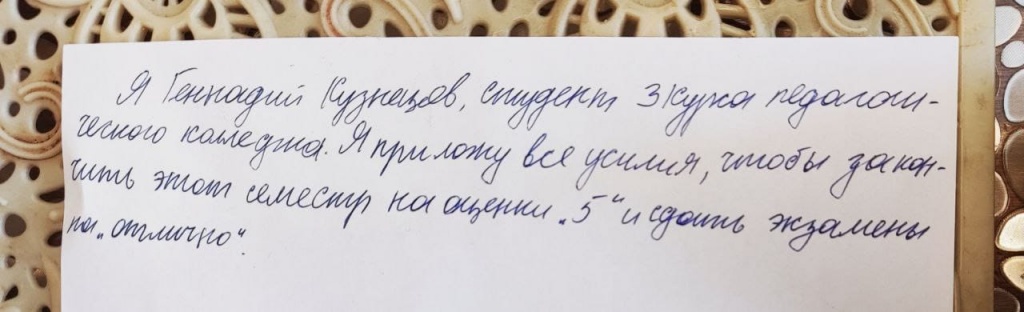 Я Геннадий Кузнецов, студент 3 курса педагоги-
ческого колледжа. Я приложу все усилия, чтобы закон-
чить этот семестр на оценки „5“ и сдать экзамены
на „отлично“.